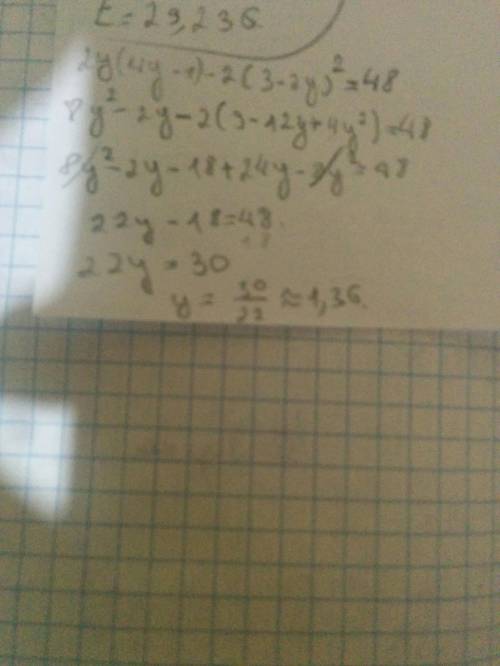 t = 29,236
2y(4y-1)-2(3-2y)²=48
8y²-2y-2(9-12y+4y²)=48
8y²-2y-18+24y-8y²=48
22y-18=48
18
22y=30
y = 30/22 ≈ 1,36.